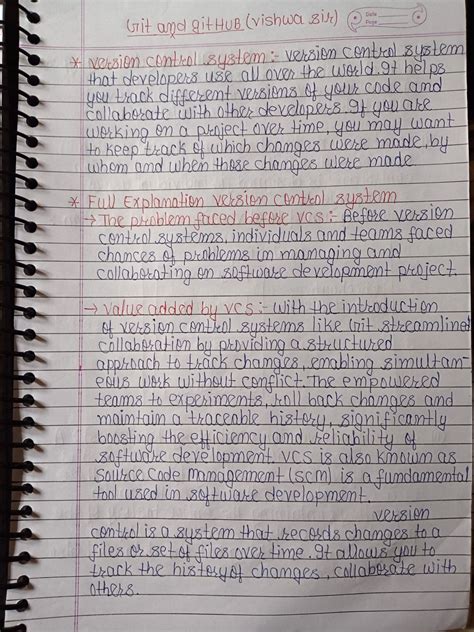 Git and gitHUB (vishwa sir)
Date
Page
* version control system :- version control system
that developers use all over the world. It helps
you track different versions of your code and
collaborate with other developers. If you are
working on a project over time, you may want
to keep track of which changes were made, by
whom and when those changes were made
* Full Explanation version control system
→ The problem faced before VCS :- Before version
control systems, individuals and teams faced
chances of problems in managing and
collaborating on software development project.
→ value added by VCS :- with the introduction
of version control systems like Git streamlined
collaboration by providing a structured
approach to track changes, enabling simultan-
eous work without conflict. The empowered
teams to experiments, roll back changes and
maintain a traceable history, significantly
boosting the efficiency and reliability of
software development. VCS is also known as
Source Code Management (SCM) is a fundamental
tool used in software development.
version
control is a system that records changes to a
files or set of files over time. It allows you to
track the history of changes, collaborate with
others.